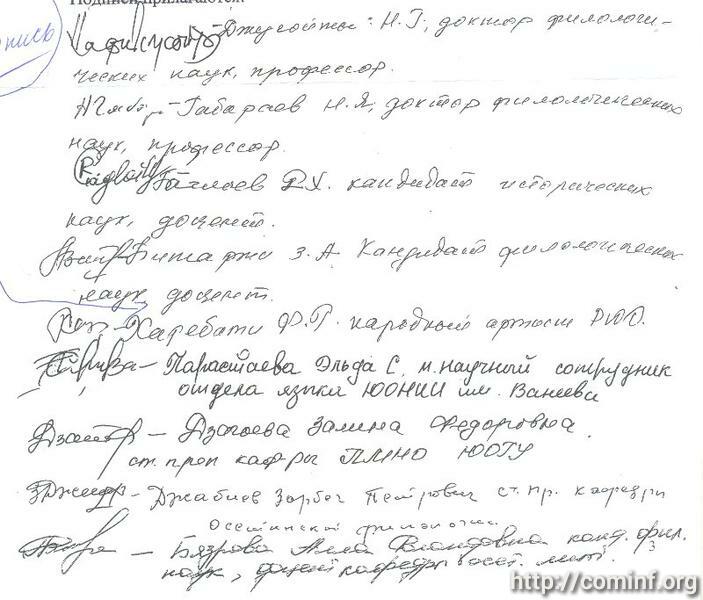 Подписи прилагаются:
пись Джусойты: Н. Г, доктор филологи-
ческих наук, профессор.
Габараев Н. Я, доктор филологических
наук, профессор.
Гаглоев Р. Х. кандидат исторических
наук, доцент.
Битарти З. А. Кандидат филологических
наук доцент.
Харебати Ф. Г. народный артист РЮО.
Парастаева Эльда С. м. научный сотрудник
отдела языка ЮОНИИ им. Ванеева
Дзагоева Залина Федоровна
ст. преп кафры ПМНО ЮОГУ
Джабиев Зарбег Петрович ст. пр. кафедри
Осетинской филологии.
Бязрова Алла канд. фил.
наук, доцент кафедры осет. лит.
http://cominf.org